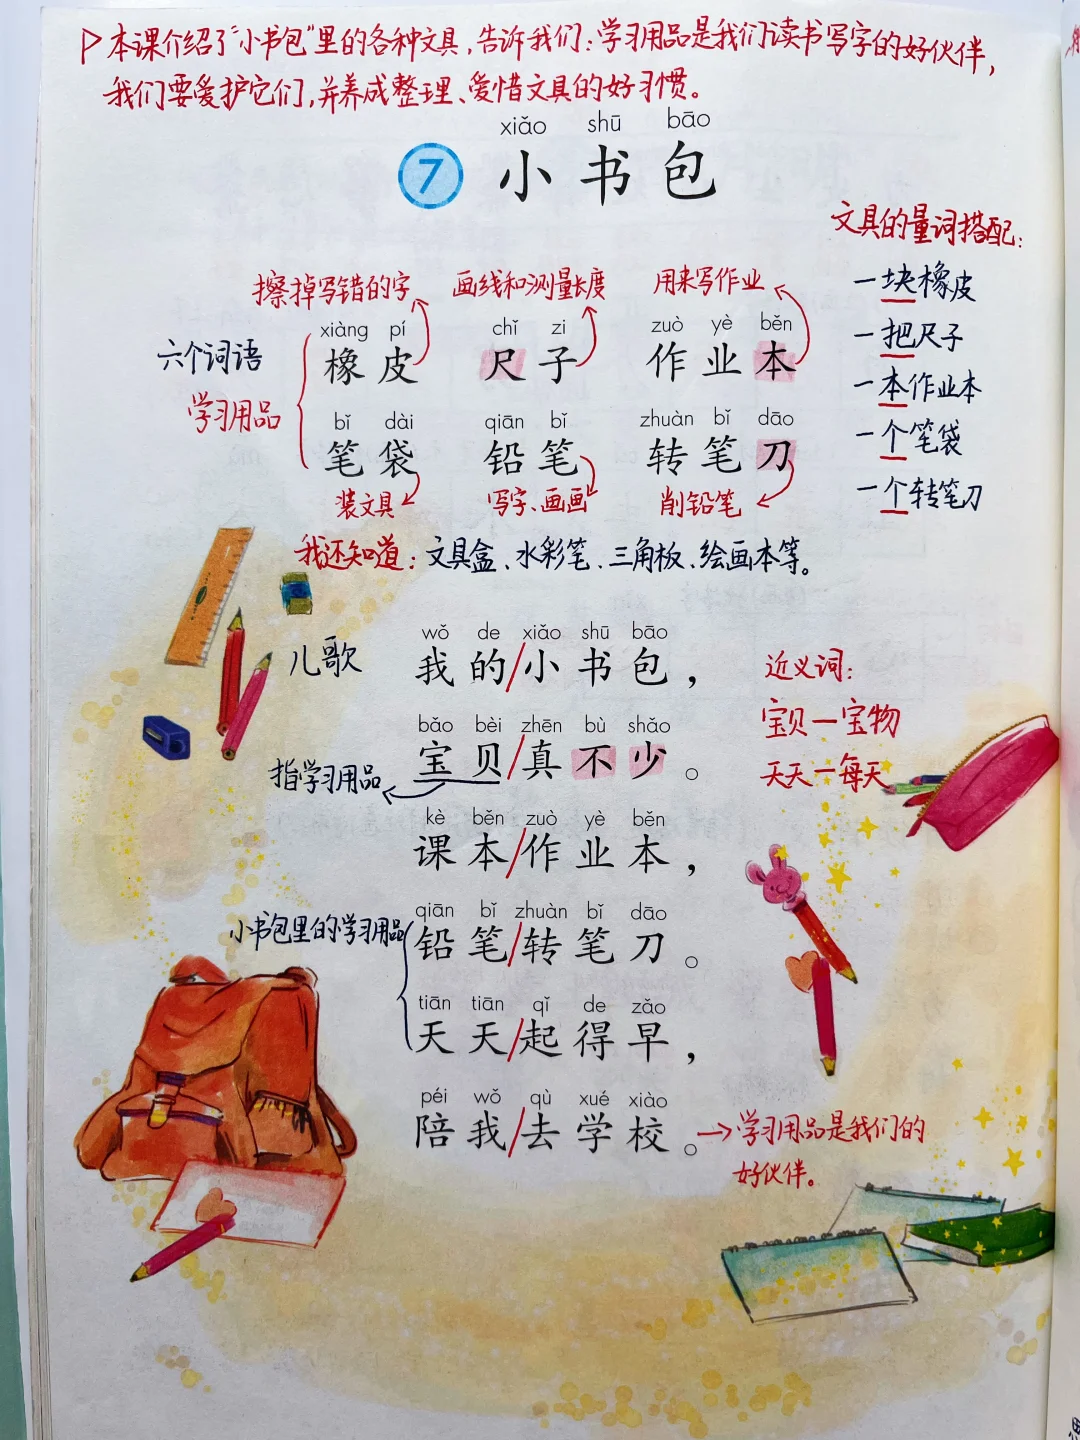 本课介绍了“小书包”里的各种文具，告诉我们：学习用品是我们读书写字的好伙伴，
我们要爱护它们，并养成整理、爱惜文具的好习惯。
xiǎo shū bāo
7 小书包
文具的量词搭配：
一块橡皮
一把尺子
一本作业本
一个笔袋
一个转笔刀
擦掉写错的字 画线和测量长度 用来写作业
xiàng pí chǐ zi zuò yè běn
橡皮 尺子 作业本
六个词语
学习用品
bǐ dài qiān bǐ zhuàn bǐ dāo
笔袋 铅笔 转笔刀
装文具 写字、画画 削铅笔
我还知道：文具盒、水彩笔、三角板、绘画本等。
儿歌
wǒ de xiǎo shū bāo
我的/小书包，
近义词：
宝贝—宝物
天天—每天
bǎo bèi zhēn bù shǎo
宝贝/真不少。
指学习用品
kè běn zuò yè běn
课本/作业本，
小书包里的学习用品
qiān bǐ zhuàn bǐ dāo
铅笔/转笔刀。
tiān tiān qǐ de zǎo
天天/起得早，
péi wǒ qù xué xiào
陪我/去学校。
学习用品是我们的
好伙伴。